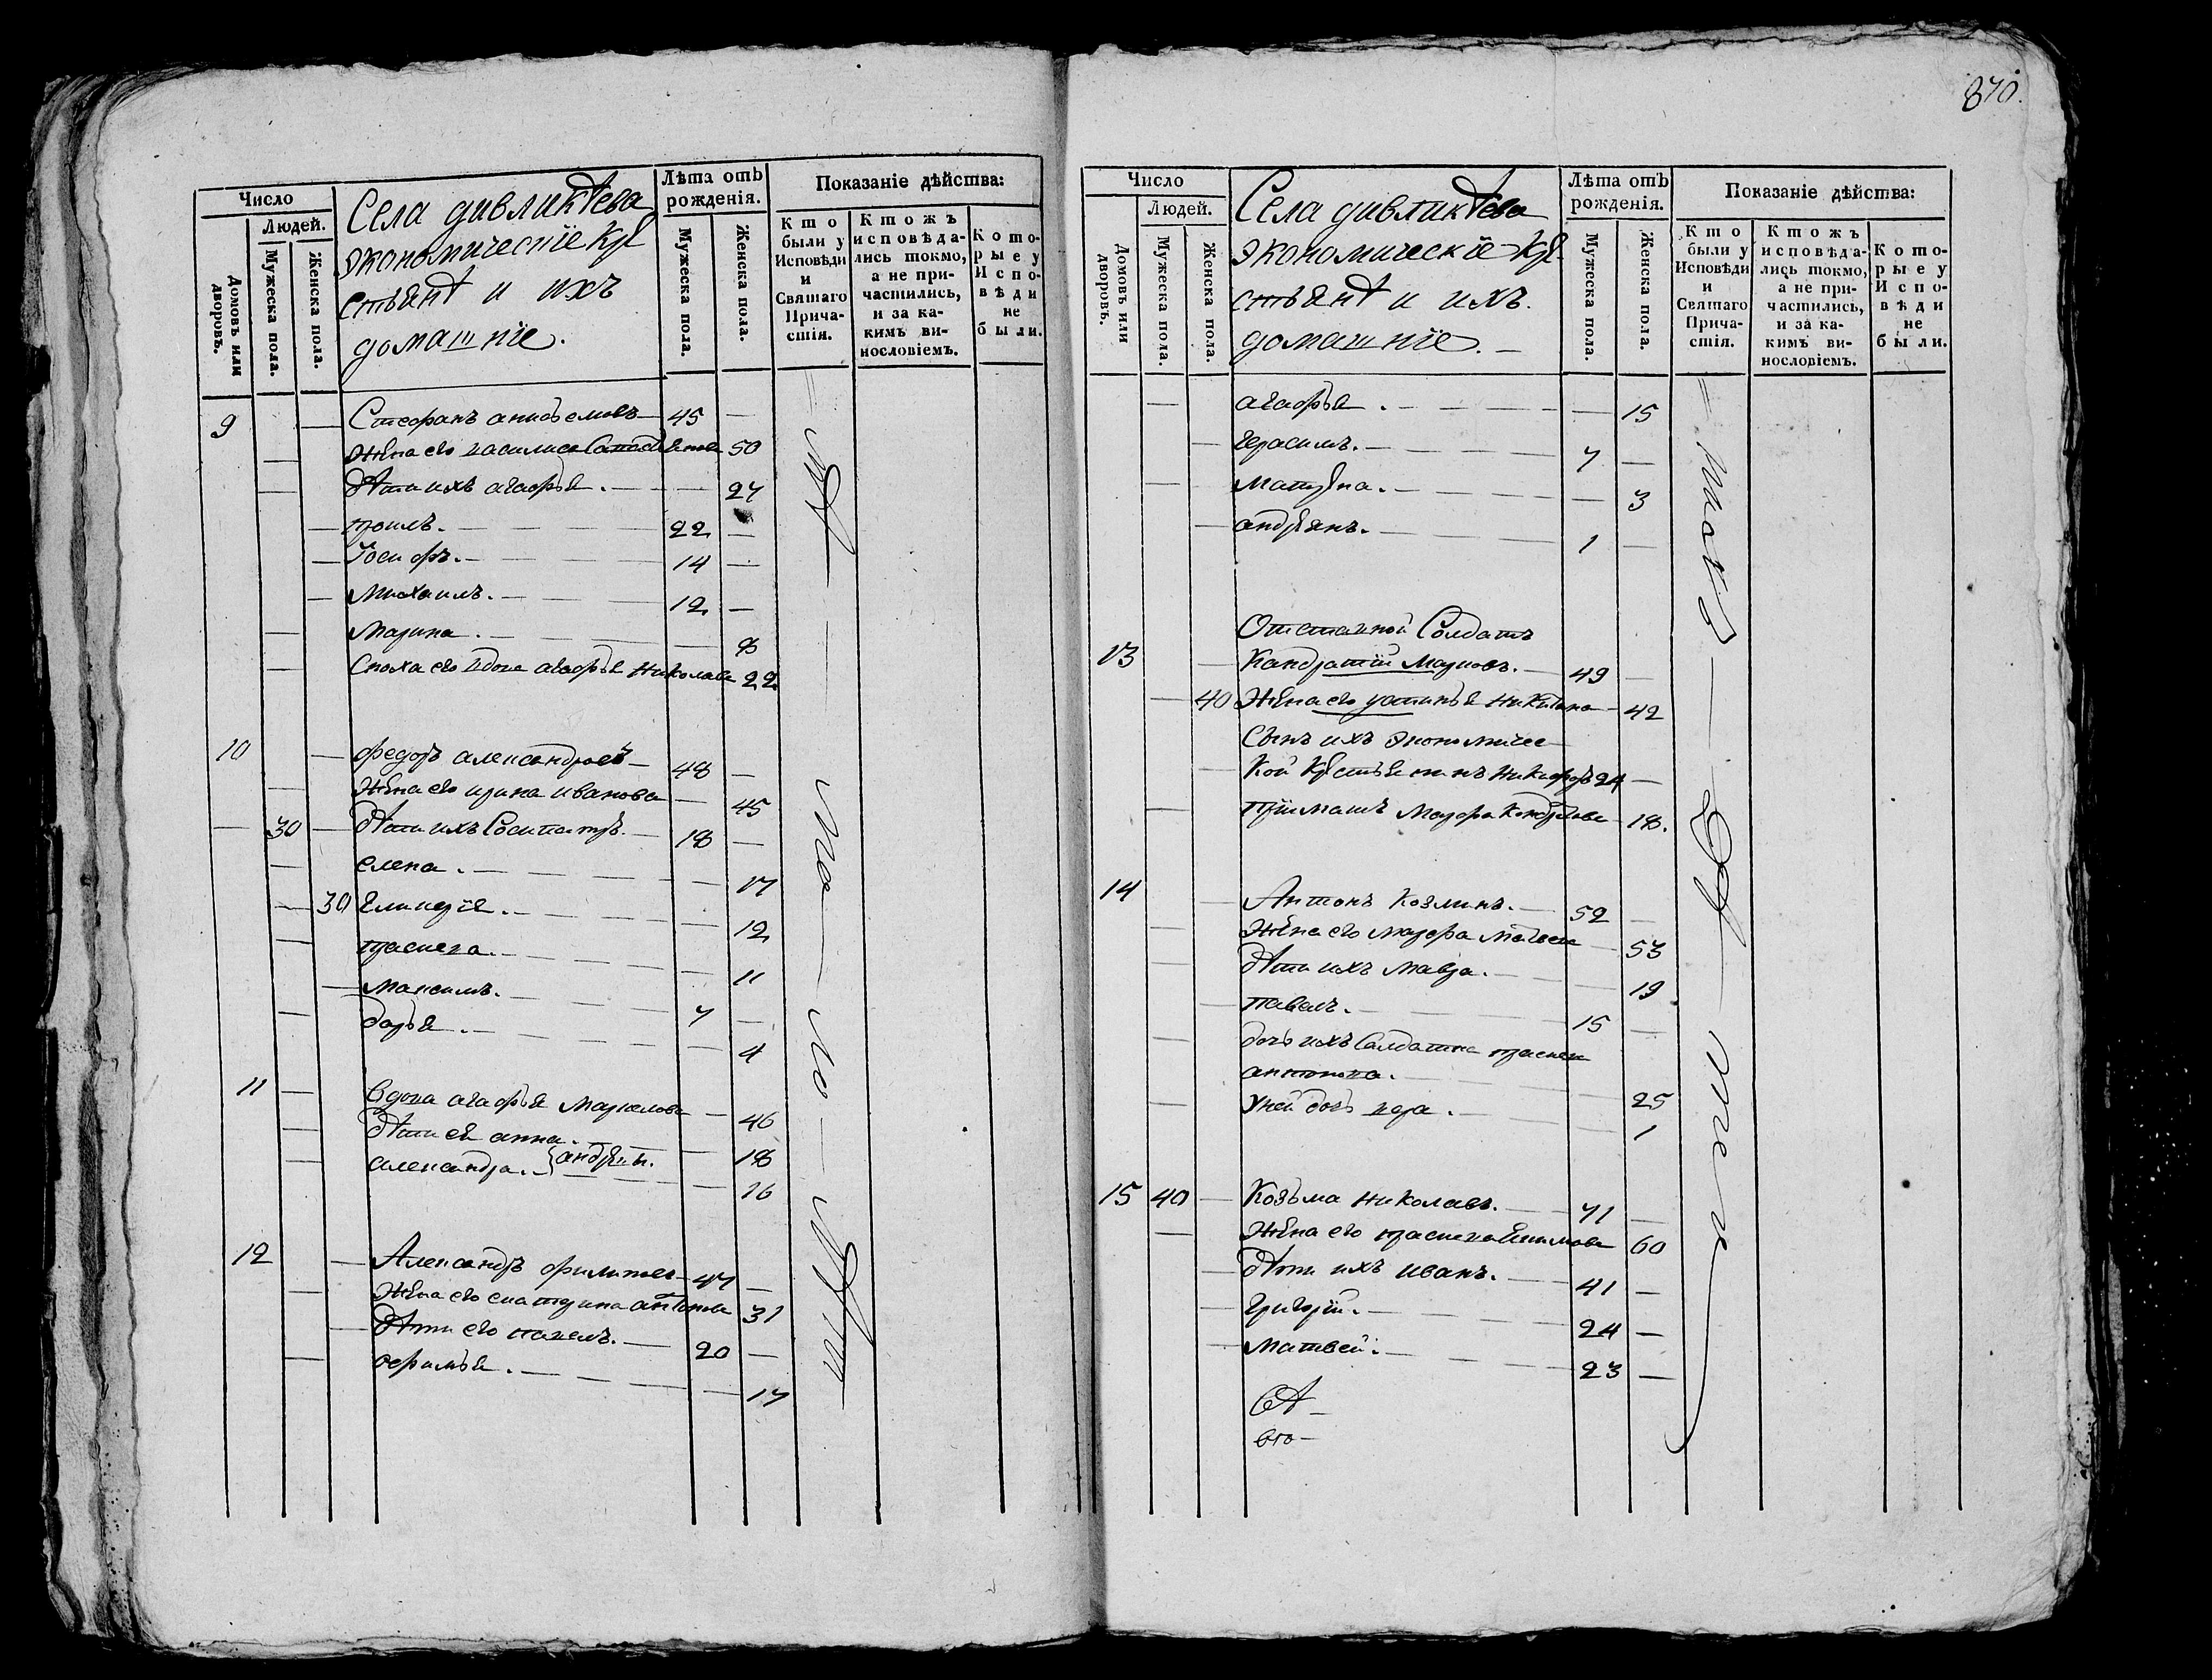 Число
Людей.
Домовъ или дворовъ.
Мужеска пола.
Женска пола.
Села дивликѣева
экономическїе кре
стьянѣ и ихъ
домашнїе.
Лѣта отъ рожденія.
Мужеска пола.
Женска пола.
Показаніе дѣйства:
Кто были у Исповѣди и Святаго Прича-стія.
Ктожъ исповѣда-лись токмо, а не при-частились, и за ка-кимъ ви-нословіемъ.
Кото-рые у Испо-вѣди не были.
9 — Стефанъ — 45 —
— Жена его василиса — 50
— дѣти ихъ агафья. — — 27
— — 22 —
— Іосифъ. — 14 —
— Михаилъ. — 12 —
— Марина. — — 8
Сноха его вдова агафья Николаева 22
10 — федоръ александровъ — 48 —
— Жена его ирина иванова — 45
— 30 — дѣти ихъ Сосипатръ. — 18 —
— елена. — — 17
— 30 — 12
— праскева. — — 11
— Максимъ. — 7 —
— дарья. — — 4
11 — вдова агафья маркелова — 46
— дѣти ея анна. — — 18
— александра. — } андреевы. — 16
12 — Александръ филипов — 47 —
— Жена его екатерина антонова 31
— дѣти его павелъ. — 20 —
— офимья. — — 17
870.
Число
Людей.
Домовъ или дворовъ.
Мужеска пола.
Женска пола.
Села дивликѣева
экономическїе кре-
стьянѣ и ихъ.
домашнїе. —
Лѣта отъ рожденія.
Мужеска пола.
Женска пола.
Показаніе дѣйства:
Кто были у Исповѣди и Святаго Прича-стія.
Ктожъ исповѣда-лись токмо, а не при-частились, и за ка-кимъ ви-нословіемъ.
Кото-рые у Испо-вѣди не были.
— агафья. — — 15
— герасимъ. — 7 —
— Матрена. — — 3
— андреянъ. — 1 —
Отставной Солдатъ
13 — Кандратїй Марковъ. — 49 —
— 40 Жена его устинья Никитина — 42
Сынъ ихъ экономичес—
— кой крестьянинъ Никифоръ 24 —
— Марфа — 18.
14 — Антонъ Козминъ. — 52 —
— Жена его марфа матвеева — 53
— дѣти ихъ мавра. — — 19
— павелъ. — 15 —
— дочь ихъ Салдатка праскева
антонова. — — 25
— у ней дочь — 1
15 40 — Козьма Николаевъ. — 71 —
— Жена его праскева 60
— дѣти ихъ иванъ. — 41 —
— григорїй. — 24 —
— Матвей. — 23 —